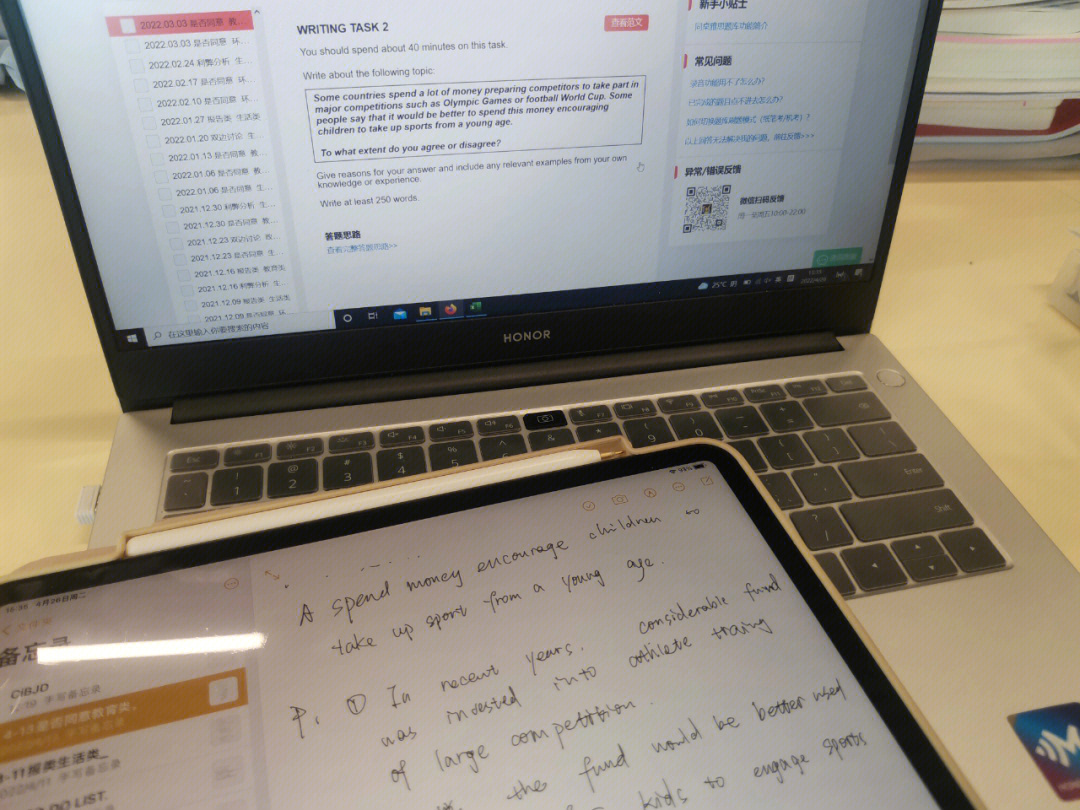 2022.03.03 是否同意 教...
2022.03.03 是否同意 环...
2022.02.24 利弊分析 生...
2022.02.17 是否同意 环...
2022.02.10 是否同意 环...
2022.01.27 报告类 生活类
2022.01.20 双边讨论 生...
2022.01.13 是否同意 教...
2022.01.06 是否同意 教...
2022.01.06 是否同意 生...
2021.12.30 利弊分析 生...
2021.12.30 是否同意 教...
2021.12.23 双边讨论 政...
2021.12.23 是否同意 生...
2021.12.16 报告类 教育类
2021.12.16 利弊分析 生...
2021.12.09 报告类 生活类
2021.12.09 是否同意 环...
在这里输入你要搜索的内容
WRITING TASK 2
查看范文
You should spend about 40 minutes on this task.
Write about the following topic:
Some countries spend a lot of money preparing competitors to take part in
major competitions such as Olympic Games or football World Cup. Some
people say that it would be better to spend this money encouraging
children to take up sports from a young age.
To what extent do you agree or disagree?
Give reasons for your answer and include any relevant examples from your own
knowledge or experience.
Write at least 250 words.
答题思路
查看完整答题思路>>
新手小贴士
常见问题
异常/错误反馈
微信扫码反馈
周一至周五10:00-22:00
25°C 阴
HONOR
Esc F1 F2 F3 F4 F5 F6 F7 F8
Enter
Shift
A spend money encourage children to
take up sport from a young age.
P1 ① In recent years. considerable fund
was invested into athlete traing
of large competition.
the fund would be better used
kids to engage sports
4月26日周二
备忘录
CiBJD
手写备忘录
4-13是否同意教育类。
-11报类生活类_
手写备忘录
DO LIST.